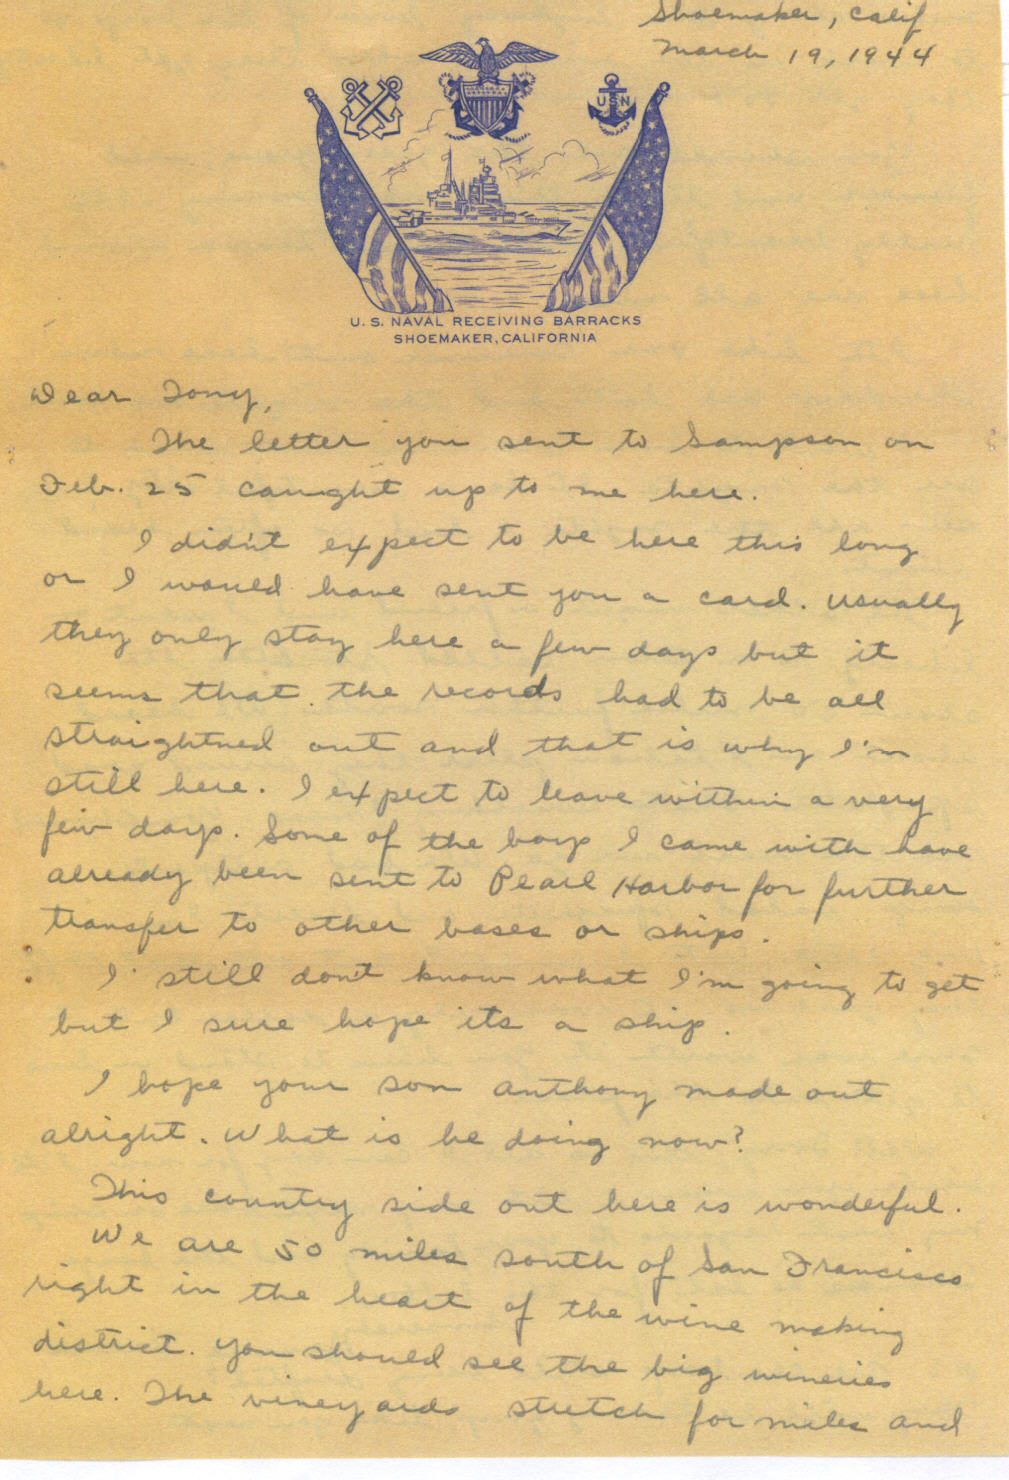 Shoemaker, Calif
March 19, 1944
USN
U. S. NAVAL RECEIVING BARRACKS
SHOEMAKER, CALIFORNIA
Dear Tony,
The letter you sent to Sampson on
Feb. 25 caught up to me here.
I didn't expect to be here this long
or I would have sent you a card. Usually
they only stay here a few days but it
seems that the records had to be all
straightned out and that is why I'm
still here. I expect to leave within a very
few days. Some of the boys I came with have
already been sent to Pearl Harbor for further
transfer to other bases or ships.
I still don't know what I'm going to get
but I sure hope its a ship.
I hope your son Anthony made out
alright. What is he doing now?
This country side out here is wonderful.
We are 50 miles south of San Francisco
right in the heart of the wine making
district. You should see the big wineries
here. The vineyards stretch for miles and